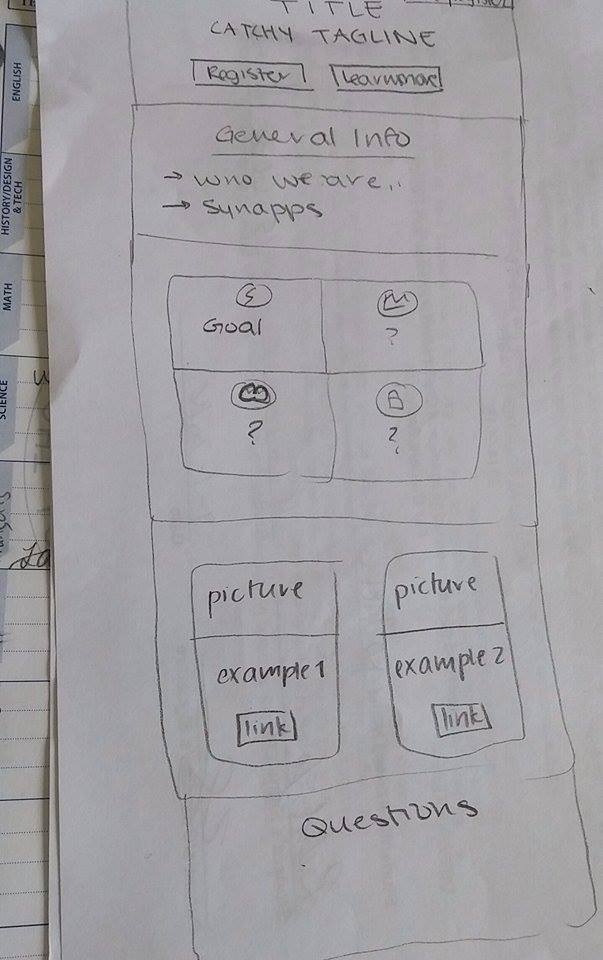 TITLE
CATCHY TAGLINE
Register Learnmore
General Info
→ who we are..
→ Synapps
Goal ?
? ?
picture picture
example 1 example 2
link link
Questions
ENGLISH
HISTORY/DESIGN
& TECH
MATH
SCIENCE